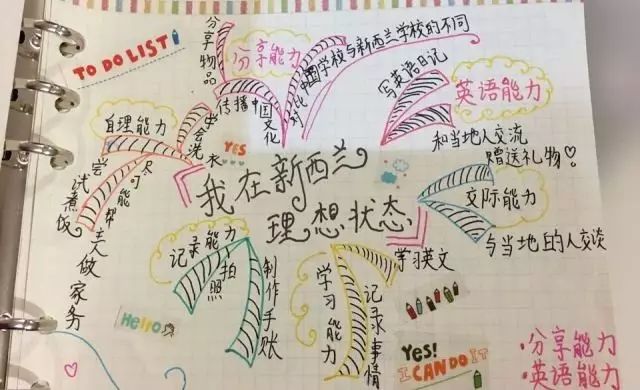 TO DO LIST!
我在新西兰
理想状态
分享能力
分享物品
传播中国文化
对比中国学校与新西兰学校的不同
英语能力
写英语日记
和当地人交流
赠送礼物♡
交际能力
与当地的人交谈
学习能力
学习英文
记录事情
记录能力
拍照
制作手账
自理能力
学会洗衣
尽可能帮主人做家务
尝试煮饭
YES
Hello
Yes!
I CAN DO IT
·分享能力
·英语能力